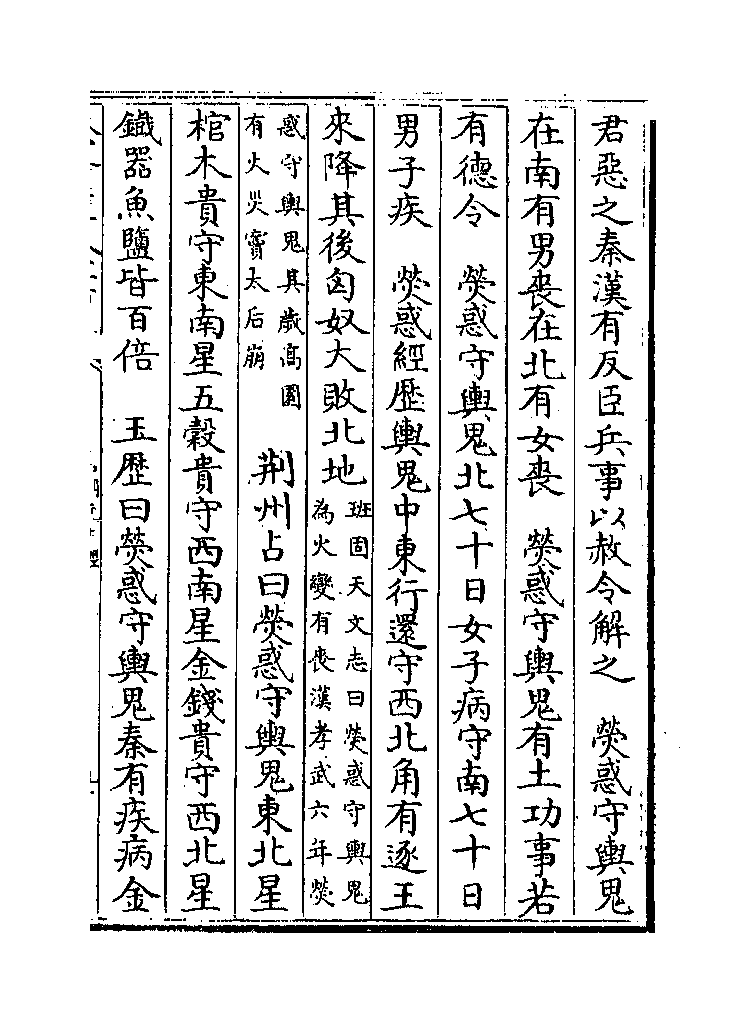 君惡之秦漢有反臣兵事以赦令解之　熒惑守輿鬼
在南有男喪在北有女喪　熒惑守輿鬼有土功事若
有德令　熒惑守輿鬼北七十日女子病守南七十日
男子疾　熒惑經歴輿鬼中東行還守西北角有逐王
來降其後匈奴大敗北地
班固天文志曰熒惑守輿鬼
為火變有喪漢孝武六年熒
惑守輿鬼其歲高園
有火災竇太后崩
荆州占曰熒惑守輿鬼東北星
棺木貴守東南星五穀貴守西南星金錢貴守西北星
鐵器魚鹽皆百倍　玉歴曰熒惑守輿鬼秦有疾病金